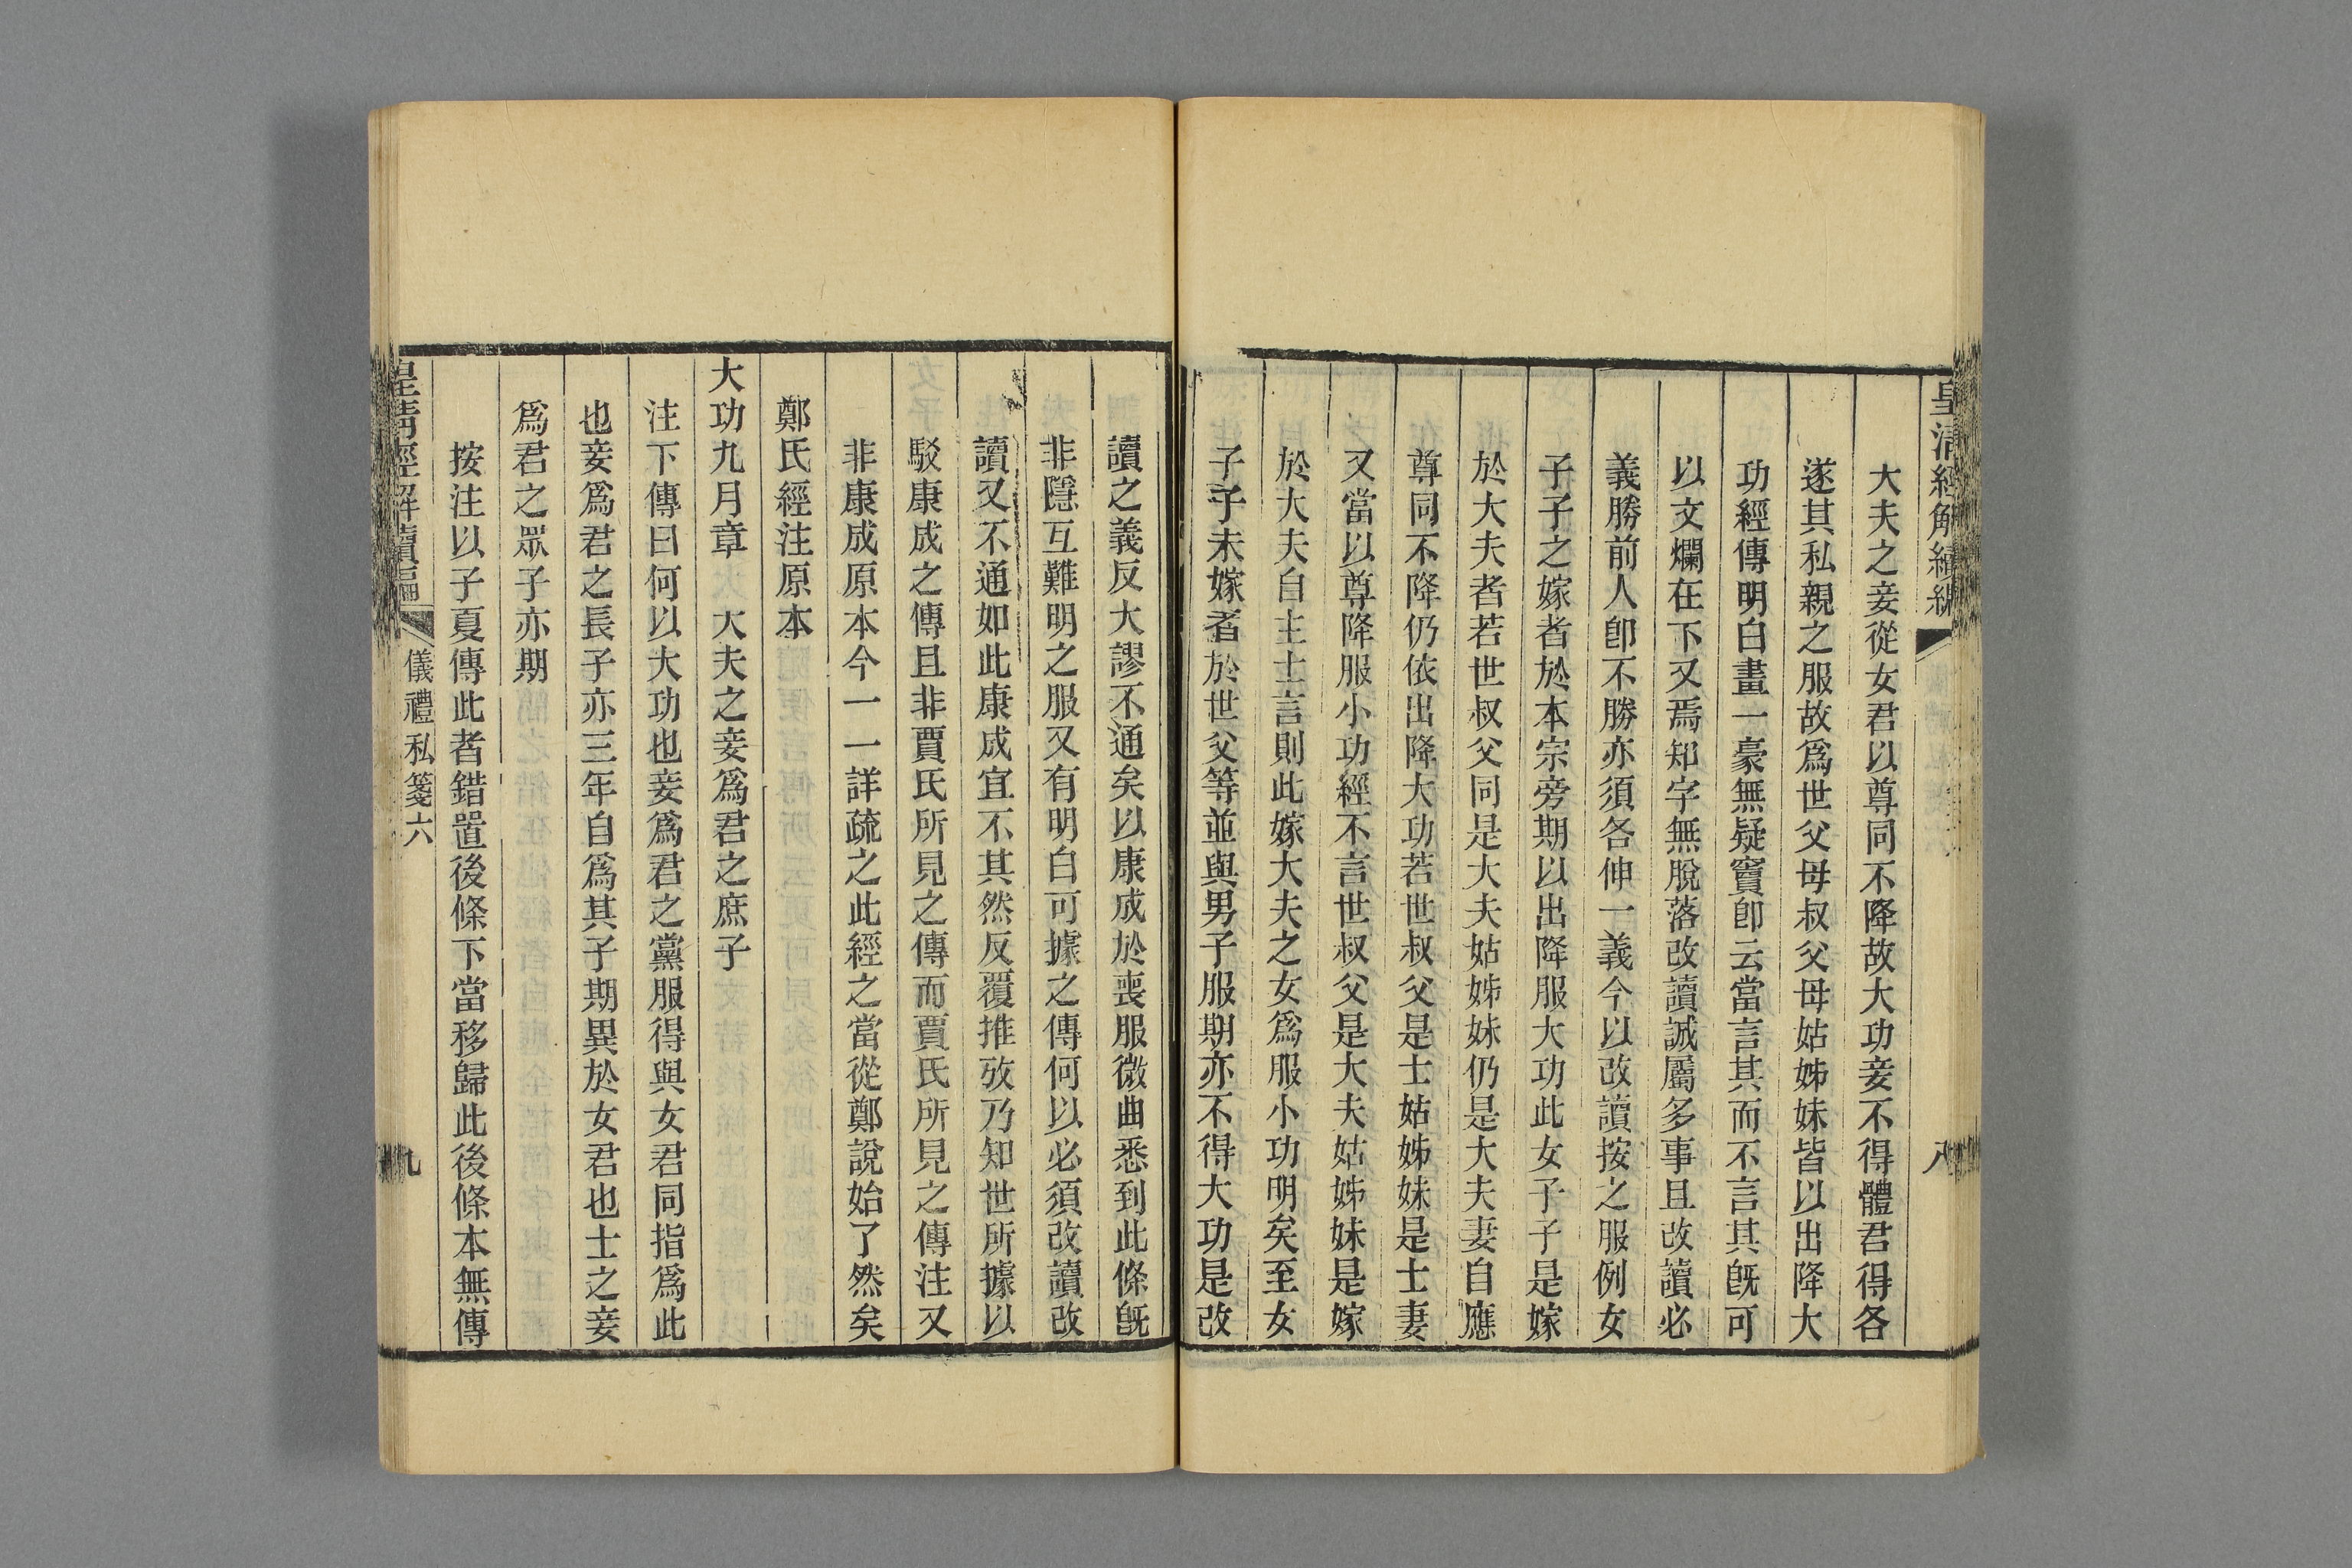 皇清經解續編
八
大夫之妾從女君以尊同不降故大功妾不得體君得各
遂其私親之服故爲世父母叔父母姑姊妹皆以出降大
功經傳明白畫一豪無疑竇卽云當言其而不言其旣可
以文爛在下又焉知字無脫落改讀誠屬多事且改讀必
義勝前人卽不勝亦須各伸一義今以改讀按之服例女
子子之嫁者於本宗旁期以出降服大功此女子子是嫁
於大夫者若世叔父同是大夫姑姊妹仍是大夫妻自應
尊同不降仍依出降大功若世叔父是士姑姊妹是士妻
又當以尊降服小功經不言世叔父是大夫姑姊妹是嫁
於大夫自主士言則此嫁大夫之女爲服小功明矣至女
子子未嫁者於世父等並與男子服期亦不得大功是改
讀之義反大謬不通矣以康成於喪服微曲悉到此條旣
非隱互難明之服又有明白可據之傳何以必須改讀改
讀又不通如此康成宜不其然反覆推攷乃知世所據以
駁康成之傳且非賈氏所見之傳而賈氏所見之傳注又
非康成原本今一一詳疏之此經之當從鄭說始了然矣
鄭氏經注原本
大功九月章　大夫之妾爲君之庶子
注下傳曰何以大功也妾爲君之黨服得與女君同指爲此
也妾爲君之長子亦三年自爲其子期異於女君也士之妾
爲君之眾子亦期
按注以子夏傳此者錯置後條下當移歸此後條本無傳
皇清經解續編
儀禮私箋六
九